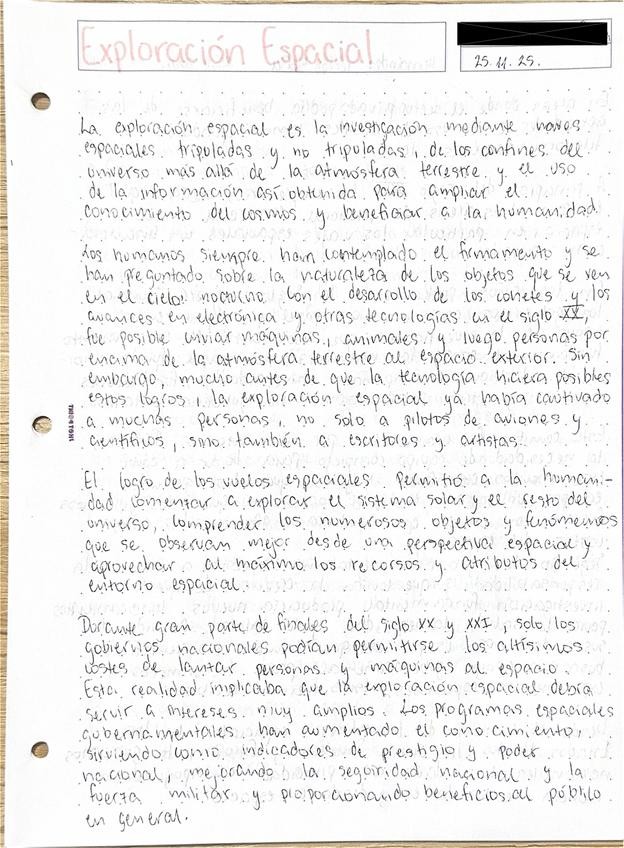 Exploración Espacial
25.11.25.
La exploración espacial es la investigación mediante naves
espaciales tripuladas y no tripuladas, de los confines del
universo más allá de la atmósfera terrestre y el uso
de la información así obtenida para ampliar el
conocimiento del cosmos y beneficiar a la humanidad.
Los humanos siempre han contemplado el firmamento y se
han preguntado sobre la naturaleza de los objetos que se ven
en el cielo nocturno. Con el desarrollo de los cohetes y los
avances en electrónica y otras tecnologías en el siglo XX,
fue posible enviar máquinas, animales y luego personas por
encima de la atmósfera terrestre al espacio exterior. Sin
embargo, mucho antes de que la tecnología hiciera posibles
estos logros, la exploración espacial ya había cautivado
a muchas personas, no solo a pilotos de aviones y
científicos, sino también a escritores y artistas.
El logro de los vuelos espaciales permitió a la humani-
dad comenzar a explorar el sistema solar y el resto del
universo, comprender los numerosos objetos y fenómenos
que se observan mejor desde una perspectiva espacial y
aprovechar al máximo los recursos y atributos del
entorno espacial.
Durante gran parte de finales del siglo XX y XXI, solo los
gobiernos nacionales podían permitirse los altísimos
costes de lanzar personas y máquinas al espacio.
Esta realidad implicaba que la exploración espacial debía
servir a intereses muy amplios. Los programas espaciales
gubernamentales han aumentado el conocimiento,
sirviendo como indicadores de prestigio y poder
nacional, mejorando la seguridad nacional y la
fuerza militar y proporcionando beneficios al público
en general.